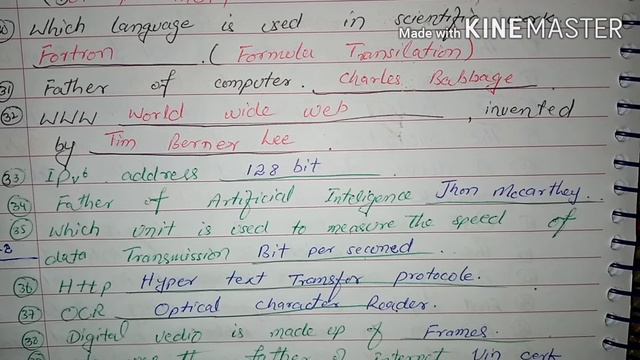 Which language is used in scientific work
Made with KINEMASTER
Fortron (Formula Transilation)
31 Father of computer. Charles Babbage
32 WWW World wide web, invented
by Tim Berner Lee.
33 IPv6 address 128 bit
34 Father of Artificial Inteligence Jhon Mccarthey.
35 Which unit is used to measure the speed of
data Transmission Bit per seconed.
36 Http Hyper text Transfer protocole.
37 OCR Optical character Reader.
38 Digital vedio is made up of Frames.
father of internet Vin cerf